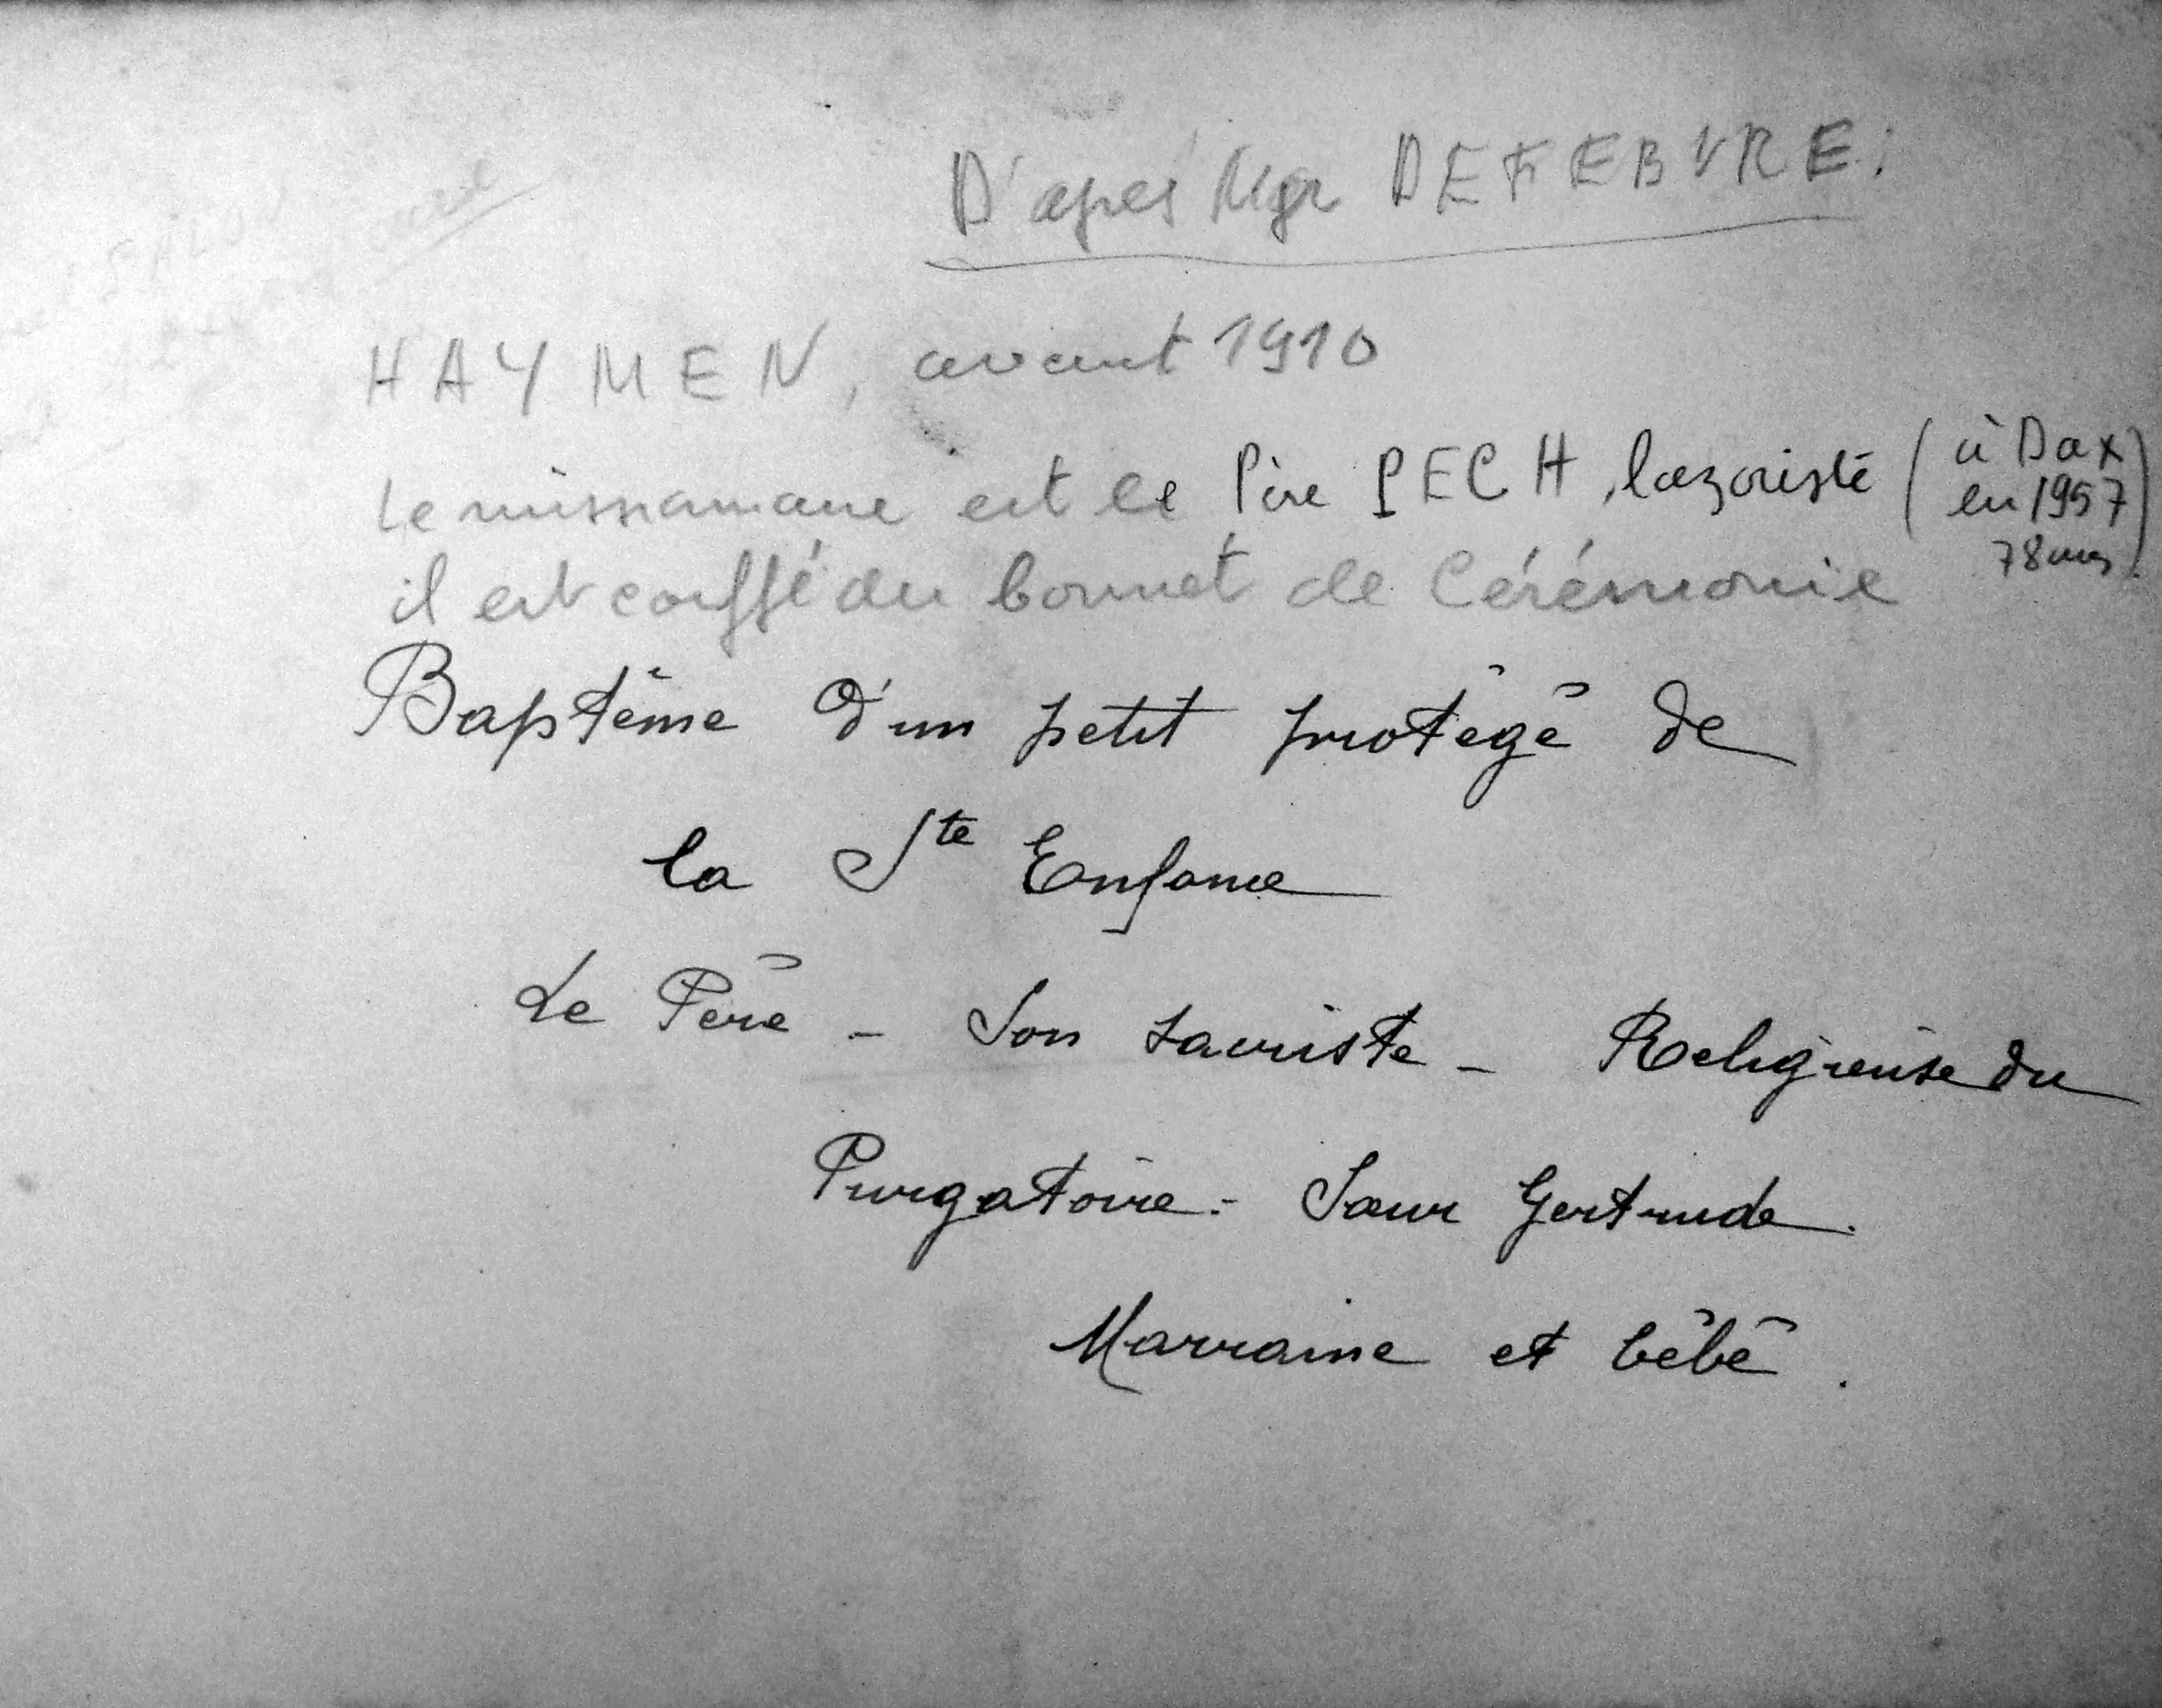 D'après Mgr DEFEBVRE :
HAYMEN, avant 1910
Le missionnaire est le Père PECH, lazariste (à Dax
en 1957
78 ans)
il est coiffé du bonnet de Cérémonie
Baptême d'un petit protégé de
la Ste Enfance
Le Père - Son sacriste - Religieuse du
Purgatoire - Sœur Gertrude.
Marraine et bébé.